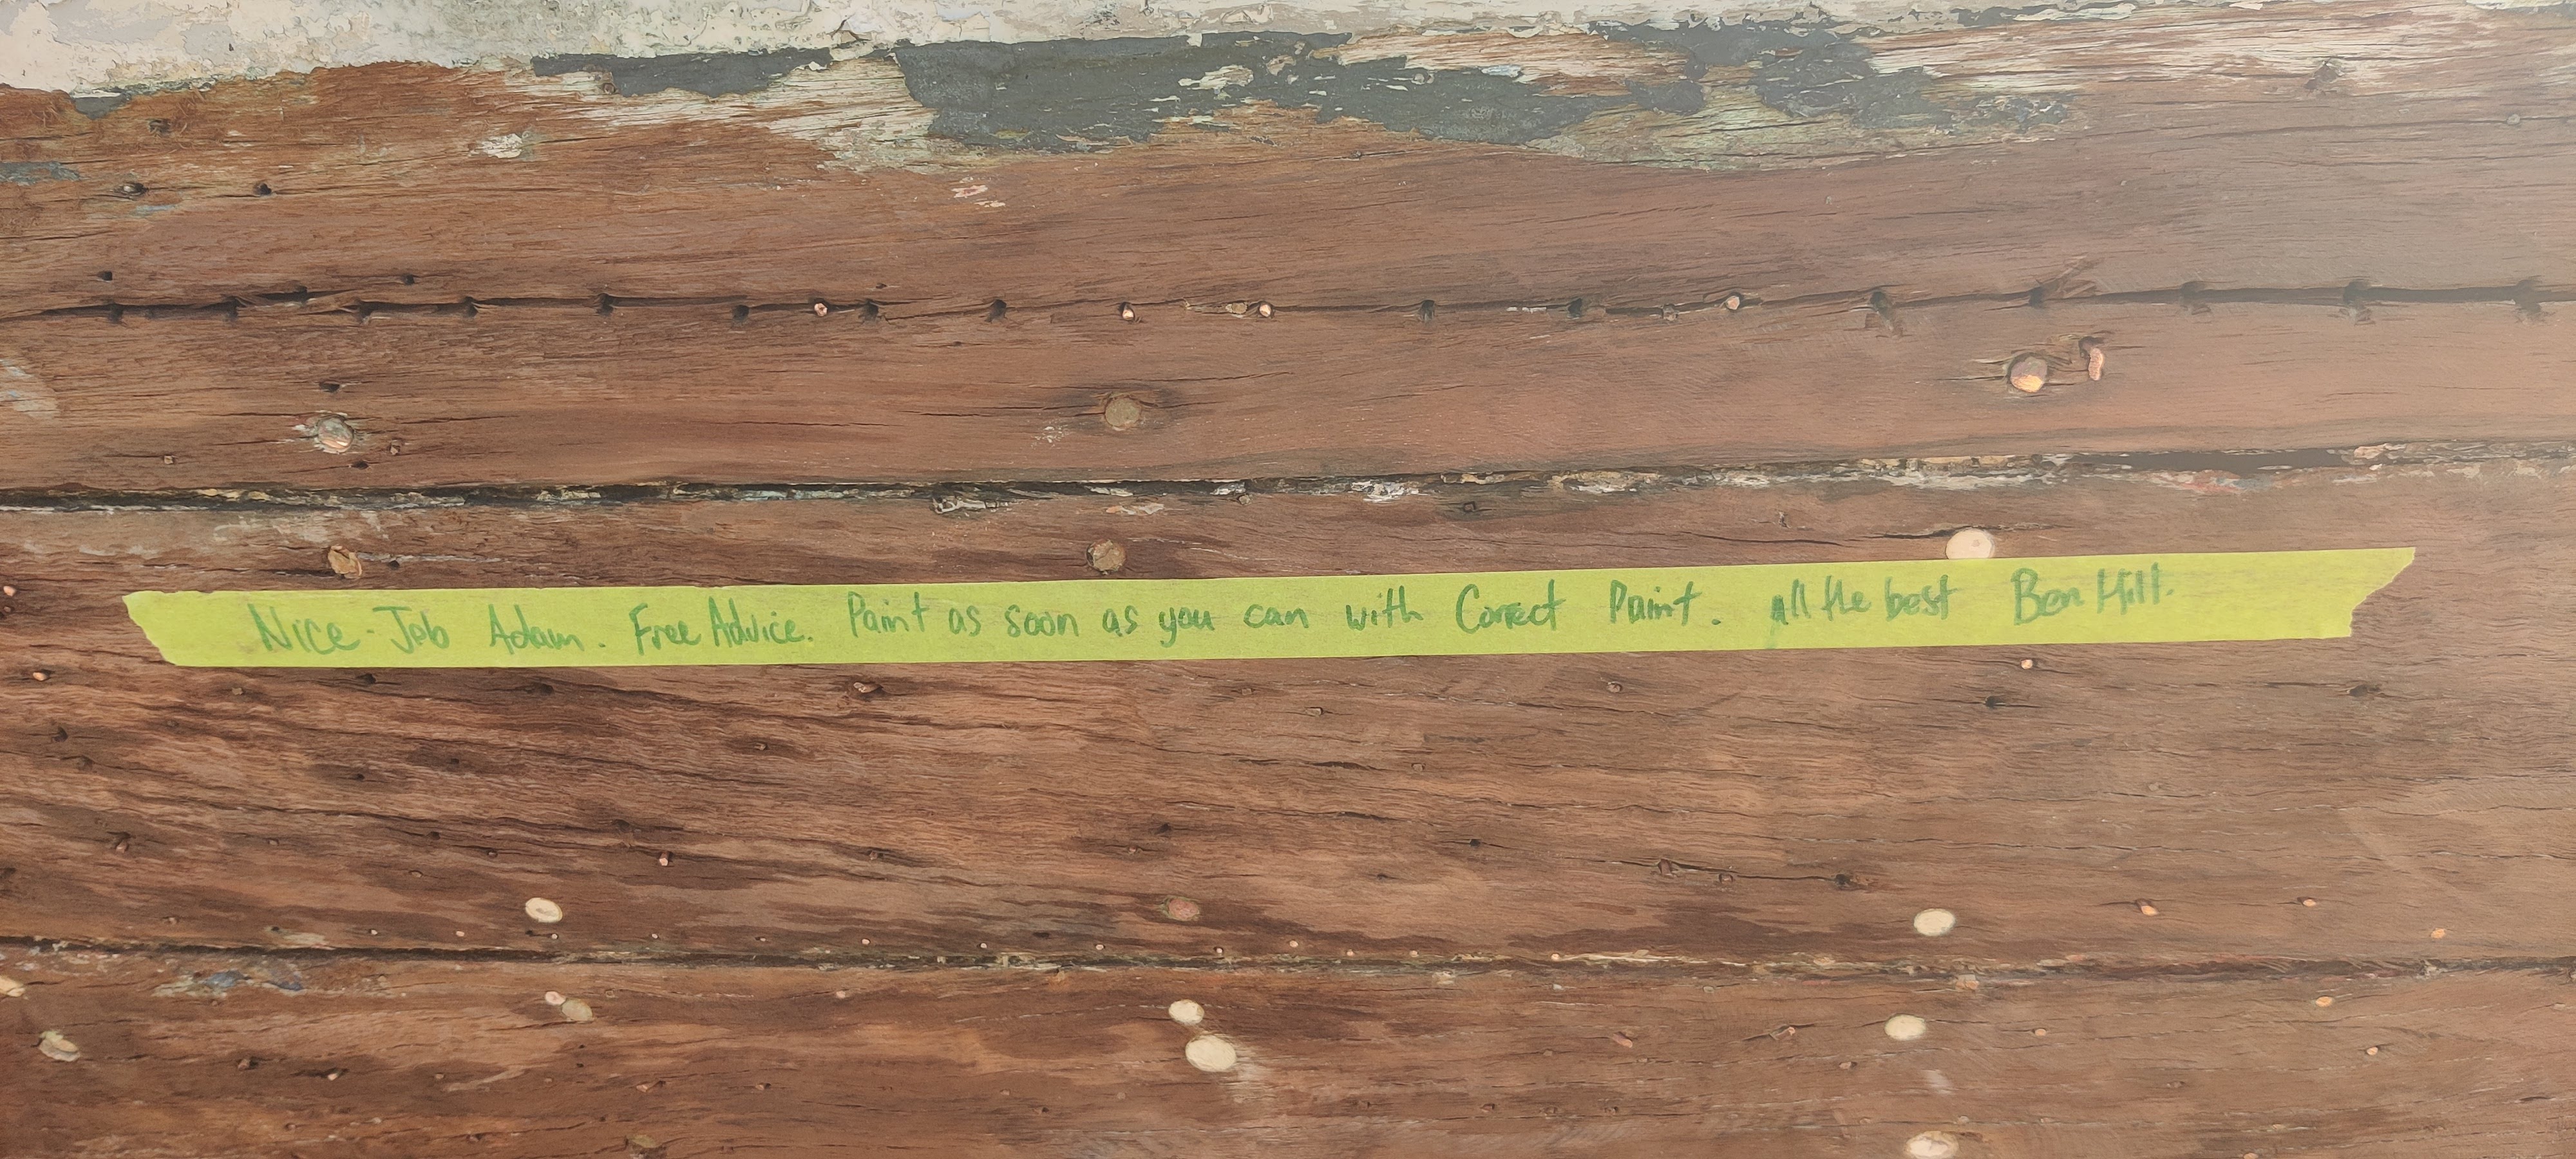 Nice Job Adam. Free Advice. Paint as soon as you can with Correct Paint. all the best Ben Hill.